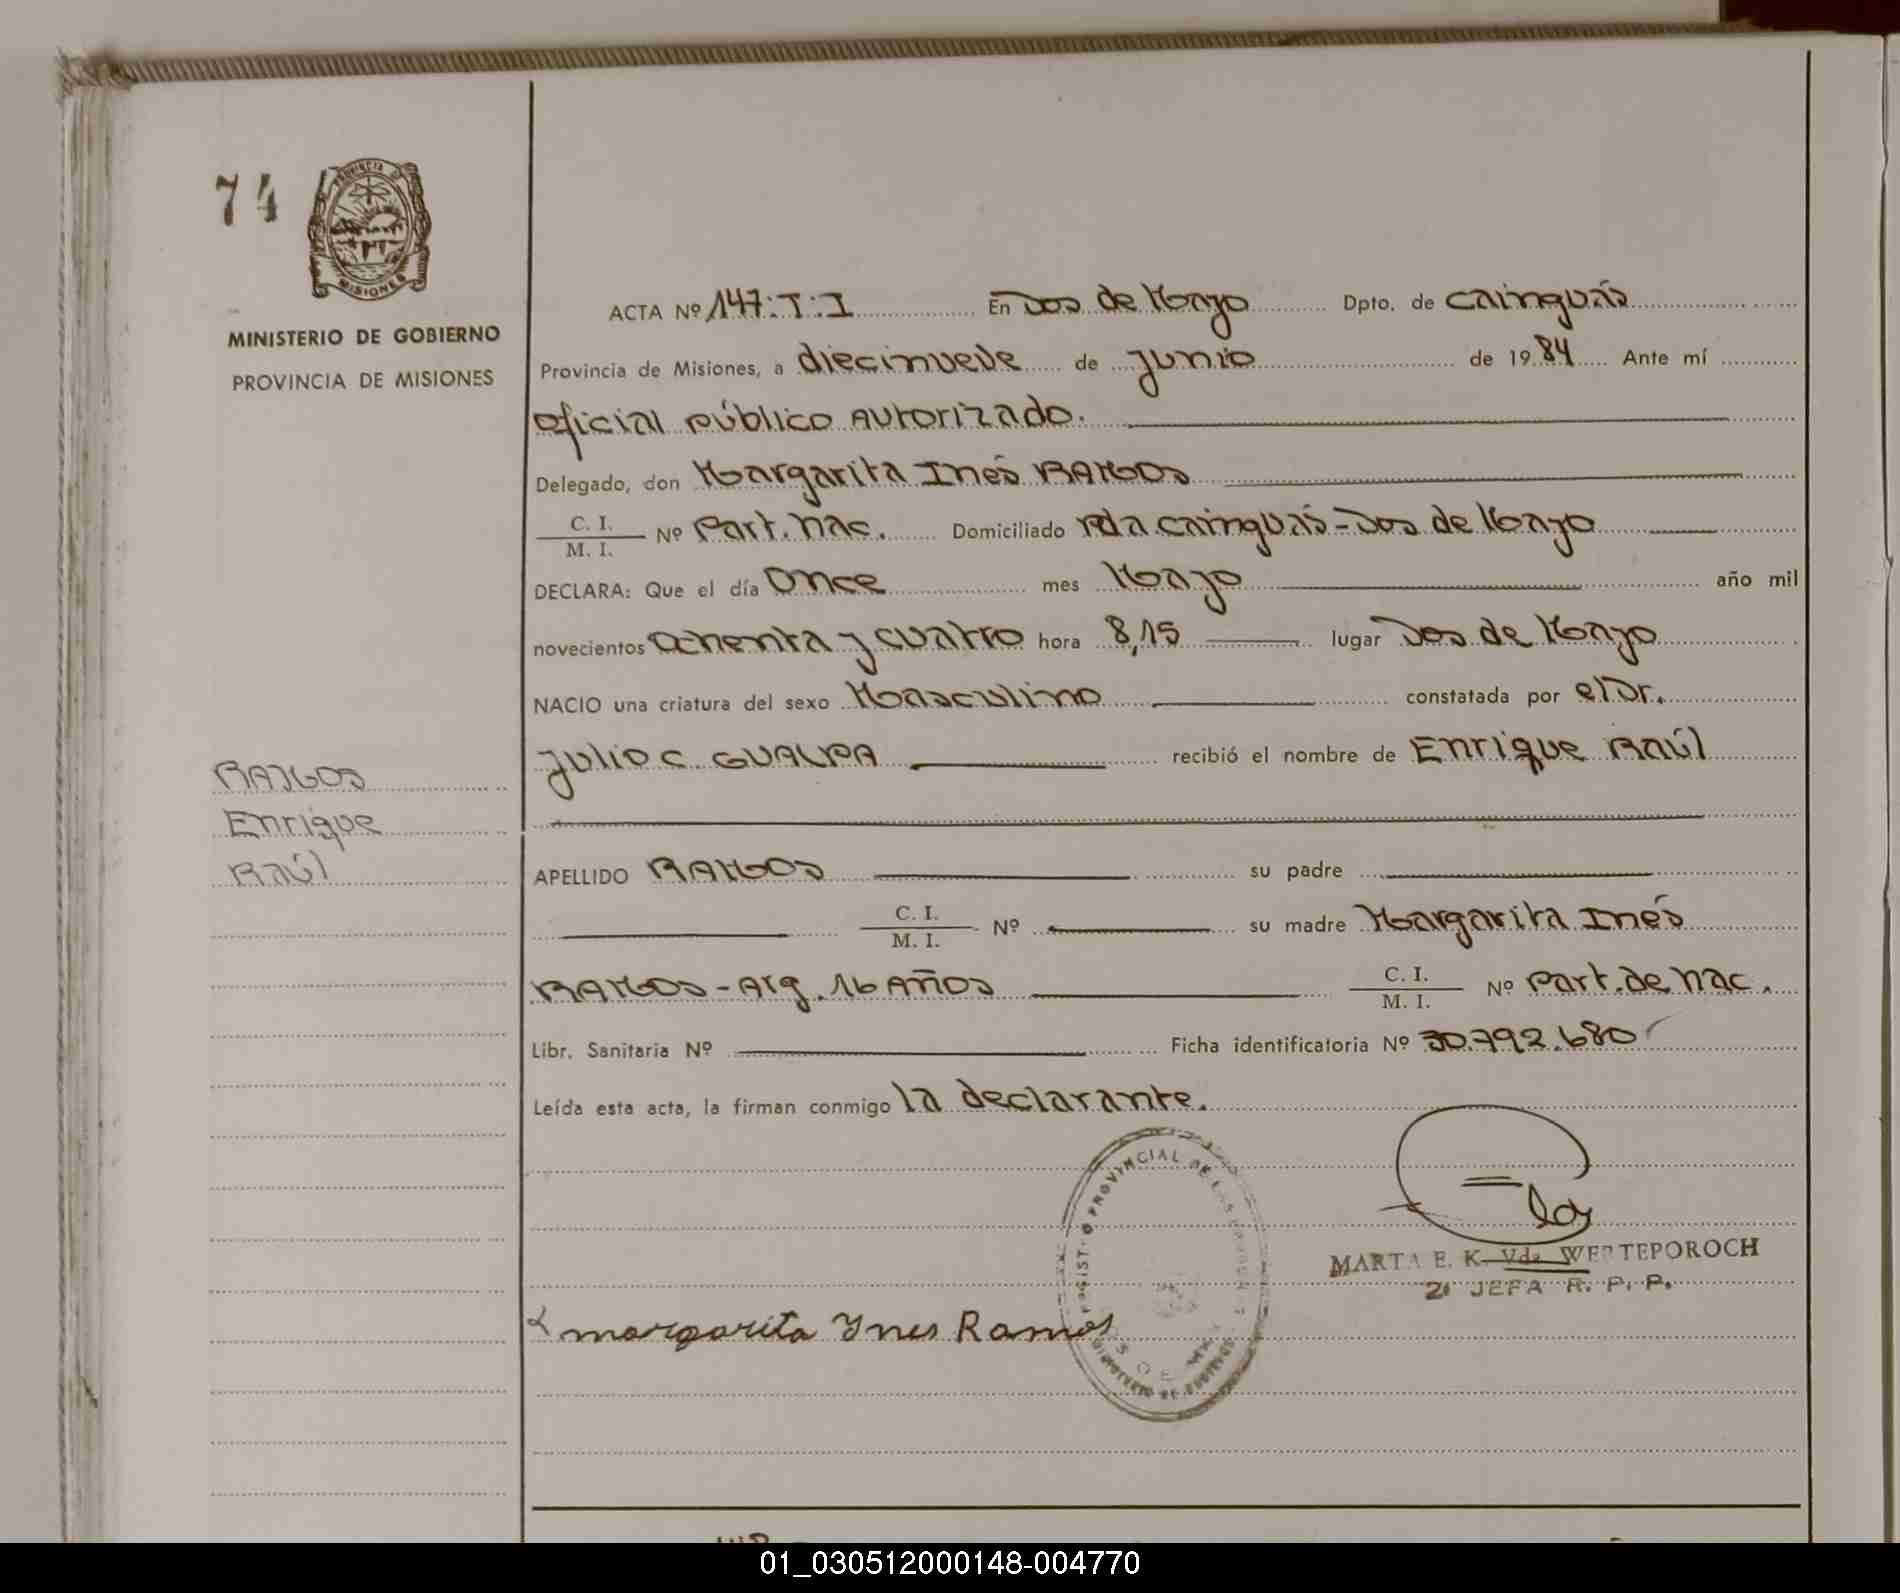 74
PROVINCIA DE
MISIONES
MINISTERIO DE GOBIERNO
PROVINCIA DE MISIONES
ACTA Nº 147:T:I En Dos de Mayo Dpto. de Cainguás
Provincia de Misiones, a diecinueve de junio de 1984 Ante mí
Oficial Público Autorizado.
Delegado, don Margarita Inés RAMOS
C. I.
M. I. Nº Part. Nac. Domiciliado Pda. Cainguás - Dos de Mayo
DECLARA: Que el día Once mes Mayo año mil
novecientos Ochenta y cuatro hora 8,15 lugar Dos de Mayo
NACIO una criatura del sexo Masculino constatada por el Dr.
Julio C. GUALPA recibió el nombre de Enrique Raúl
RAMOS
Enrique
Raúl
APELLIDO RAMOS su padre
C. I.
M. I. Nº su madre Margarita Inés
RAMOS - Arg. 16 Años C. I.
M. I. Nº Part. de Nac.
Libr. Sanitaria Nº Ficha identificatoria Nº 30.792.680
Leída esta acta, la firman conmigo la declarante.
PROVINCIAL DE LAS
MARTA E. K. Vda. WERTEPOROCH
2º JEFA R. P. P.
margarita Ynes Ramos
01_030512000148-004770